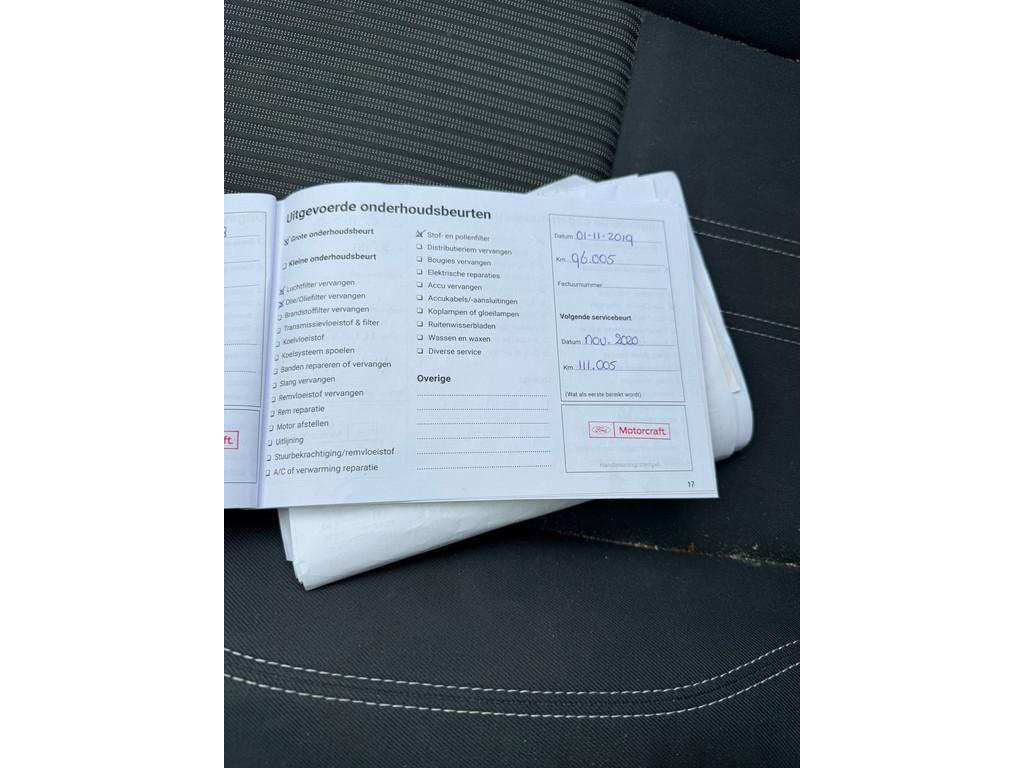 Uitgevoerde onderhoudsbeurten
Grote onderhoudsbeurt
Kleine onderhoudsbeurt
Luchtfilter vervangen
Olie/Oliefilter vervangen
Brandstoffilter vervangen
Transmissievloeistof & filter
Koelvloeistof
Koelsysteem spoelen
Banden repareren of vervangen
Slang vervangen
Remvloeistof vervangen
Rem reparatie
Motor afstellen
Uitlijning
Stuurbekrachtiging/remvloeistof
A/C of verwarming reparatie
Stof- en pollenfilter
Distributieriem vervangen
Bougies vervangen
Elektrische reparaties
Accu vervangen
Accukabels/-aansluitingen
Koplampen of gloeilampen
Ruitenwisserbladen
Wassen en waxen
Diverse service
Overige
Datum 01-11-2019
Km 96.005
Factuurnummer
Volgende servicebeurt
Datum nov. 2020
Km 111.005
(Wat als eerste bereikt wordt)
Ford Motorcraft
Handtekening/stempel
17